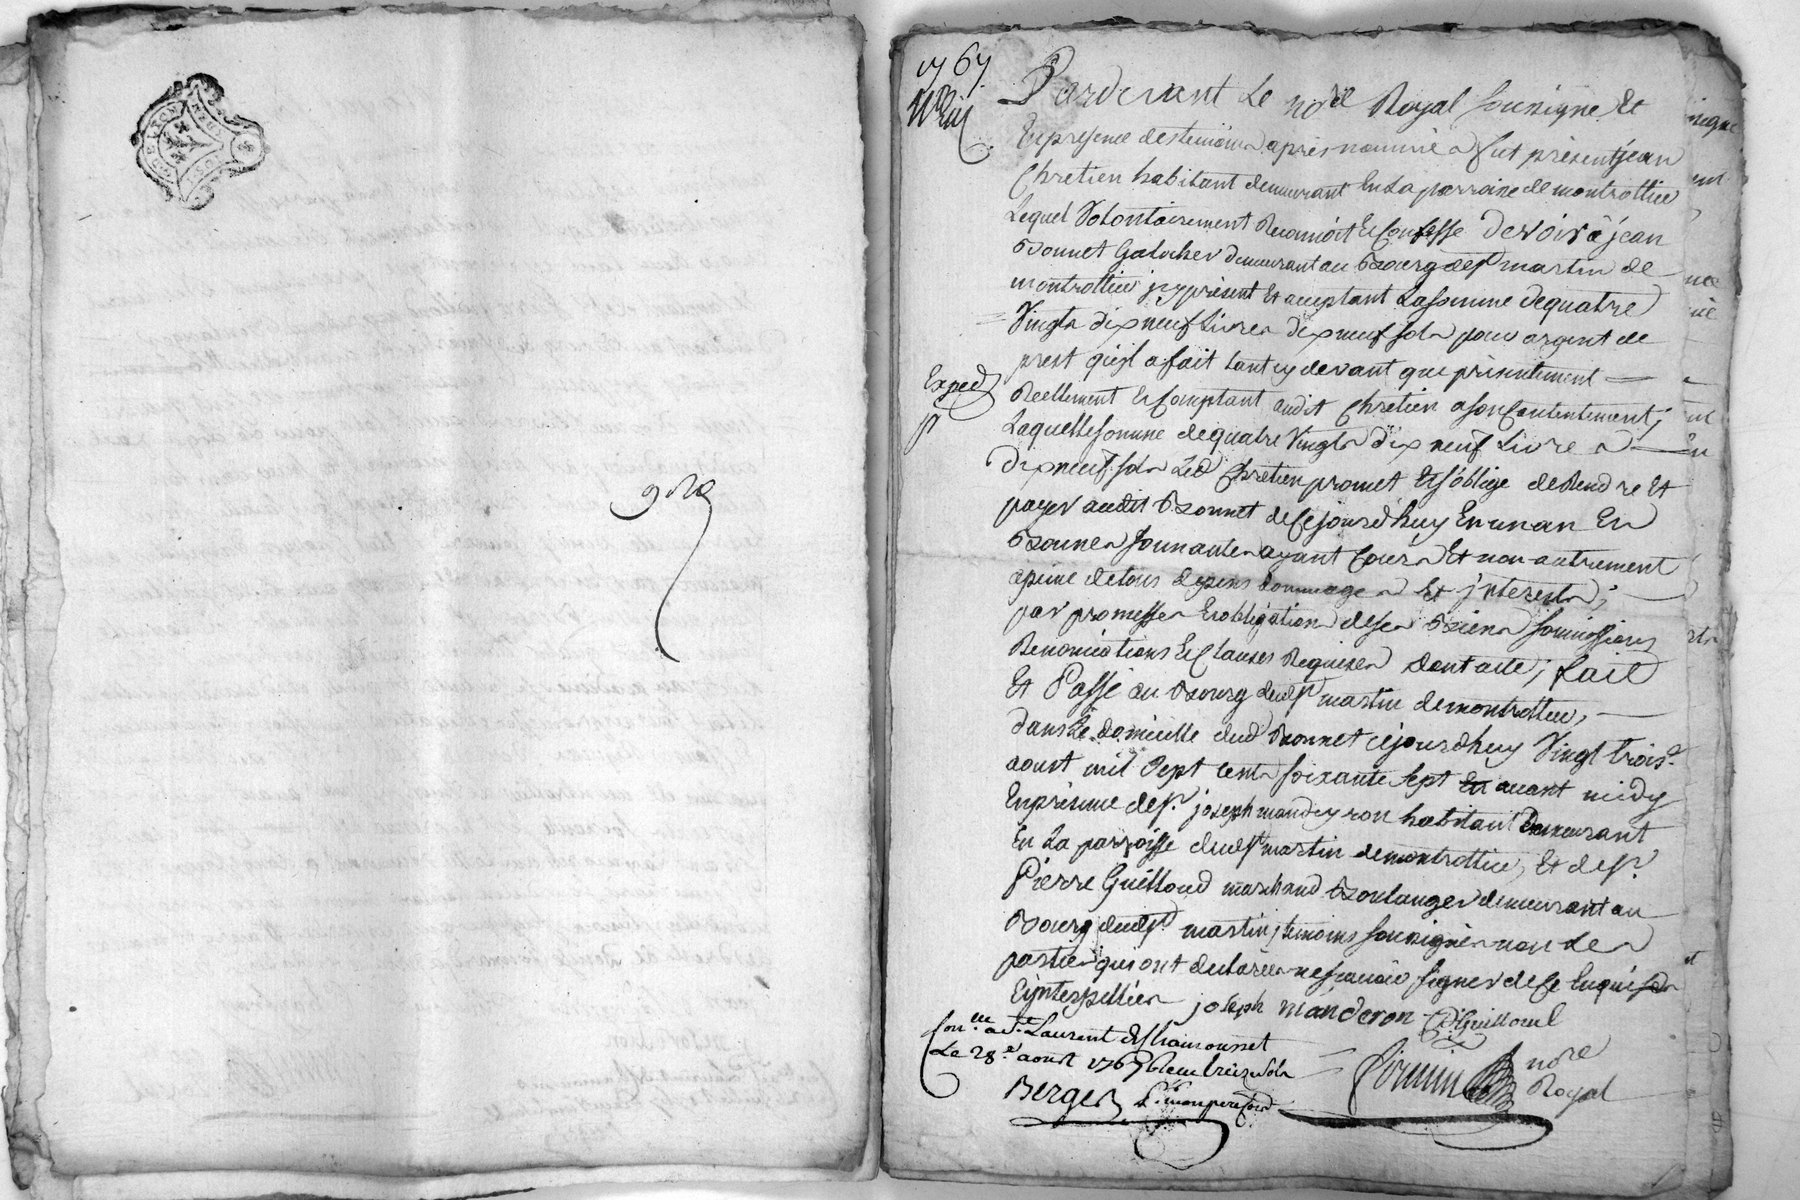 1767
Pardevant Le no.re Royal soussigné Et
En presence des temoins apres nommés fut présent jean
Chretien habitant demeurant En La parroisse de montrottier
Lequel Volontairement Reconnoit Et Confesse Devoir à jean
Bonnet Galocher demeurant au Bourg de St martin de
montrottier jcy présent Et acceptant La somme de quatre
Vingts dix neuf Livres dix neuf sols pour argent de
prest qu'jl a fait tant cy devant que présentement
Exped.
Reellement Et Comptant audit Chretien a son Contentement;
Laquelle somme de quatre Vingts dix neuf Livres
dix neuf sols Led Chretien promet Et s'oblige de Rendre Et
payer audit Bonnet de Cejourd'huy En un an En
Bonnes sonnantes ayant Cours Et non autrement
a peine de tous depens dommages Et jnterests;
par promesses Et obligation de ses Biens soumissions
Renonciations Et Clauses Requises Dont acte; fait
Et Passé au Bourg dud St martin de montrottier,
dans Le domicille dud Bonnet cejourdhuy Vingt trois.e
aoust mil Sept cents soixante sept avant midy
En présence de Sr. joseph mandeyron habitant Demeurant
En La parroisse dud St martin de montrottier, Et de Sr.
Pierre Guilloud marchand Boulanger demeurant au
Bourg dud St. martin, temoins soussignés non Les
parties qui ont declarées ne scavoir signer de Ce Enquises
Et jnterpellées joseph mánderon P Guilloud
Con.lle a St. Laurent de Chamousset
Le 28.e aoust 1767 Recu treize sols
Berger
no.re
Royal